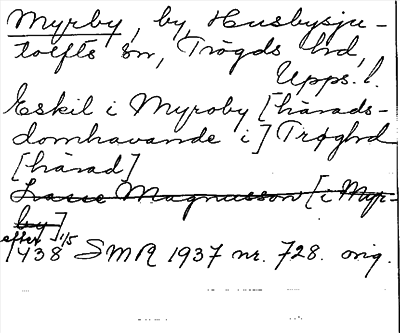 Myrby, by, Husbysju-
tolfts sn, Trögds hd,
Upps. l.
Eskil i Myroby [härads-
domhavande i] Trøghd
[härad]
Lasse Magnusson [i Myr-
by]
efter 1/5
1438 SMR 1937 nr. 728. orig.